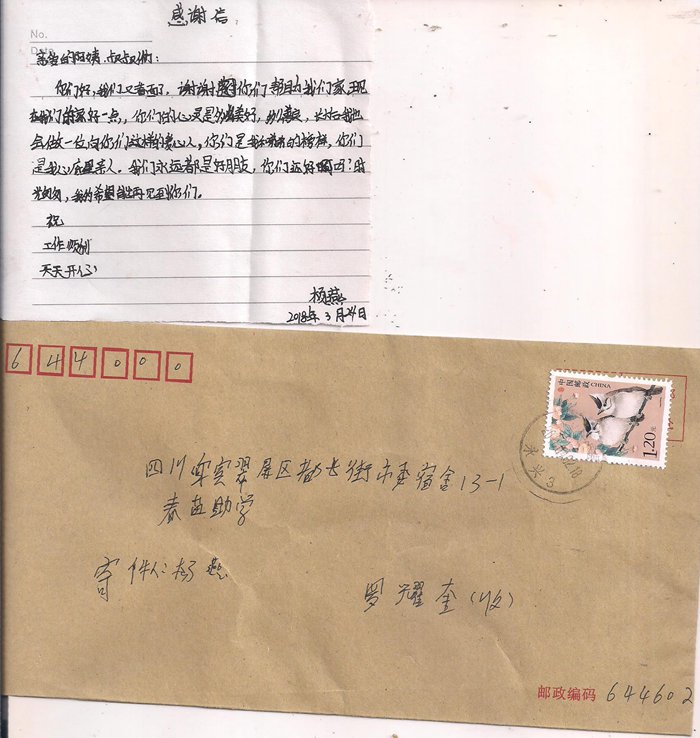 感谢信
No.
Date
亲爱的阿姨,叔叔们:
你们好,我们又春面了。谢谢你们帮助我们家,现
在我们的家好一点,你们的心灵是美好,善良,长大我也
会做一位向你们这样的爱心人,你们是我的榜样,你们
是我心底里亲人。我们永远都是好朋友,你们还好吗?时
光匆匆,我的希望能再见到你们。
祝
工作顺利
天天开心
杨燕
2018年3月24日
644000
中国邮政 CHINA
1.20元
四川宜宾翠屏区都长街市委宿舍13-1
春苗助学
寄件人:杨燕
罗耀奎(收)
邮政编码 644602